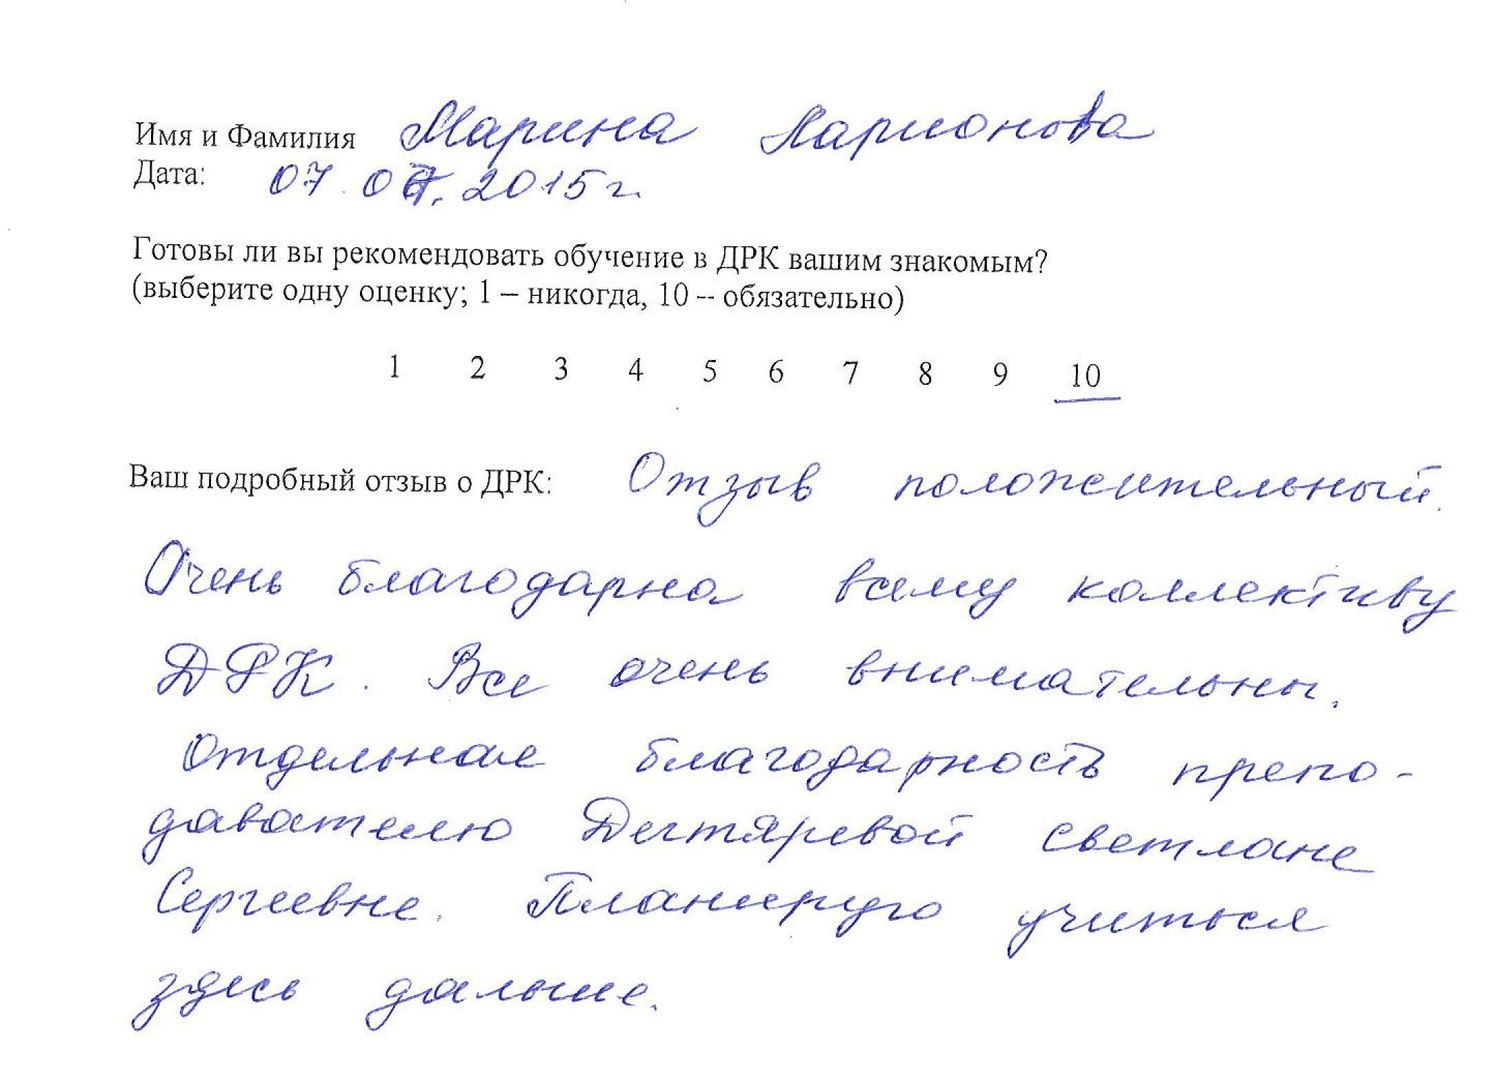 Имя и Фамилия Марина Ларионова
Дата: 07.07.2015 г.
Готовы ли вы рекомендовать обучение в ДРК вашим знакомым?
(выберите одну оценку; 1 – никогда, 10 -- обязательно)
1 2 3 4 5 6 7 8 9 10
Ваш подробный отзыв о ДРК: Отзыв положительный.
Очень благодарна всему коллективу
ДРК. Все очень внимательны.
Отдельная благодарность препо-
давателю Дегтяревой Светлане
Сергеевне. Планирую учиться
здесь дальше.